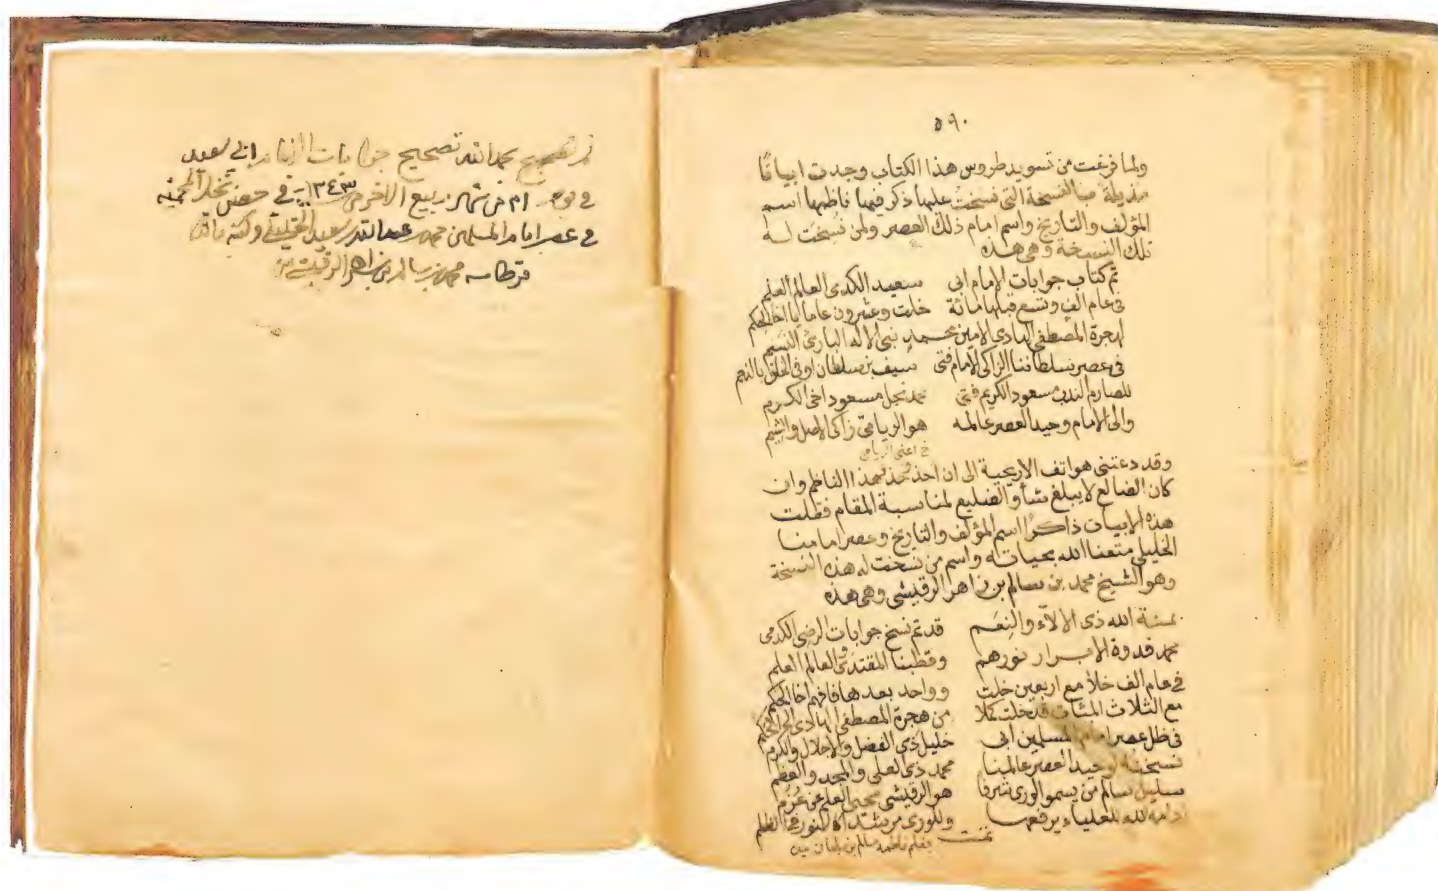 ٥٩٠
ولما فرغت من تسويد طروس هذا الكتاب وجدت ابياتًا
مذيلة بها النسخة التى نسخت عليها ذكر فيها ناظمها اسم
المؤلف والتاريخ واسم امام ذلك العصر ولمن نُسخت له
تلك النسخة وهى هذه
تم كتاب جوابات الامام ابى سعيد الكدمى العالم العلم
فى عام الف وتسع قبلها مائة خلت وعشرون عاما يا اخا الحكم
لهجرة المصطفى الهادى الامين محمد نبى الاله البارئ النسم
فى عصر سلطاننا الزاكى الامام فتى سيف بن سلطان اوفى الخلق بالذمم
للصارم الندب مسعود الكريم فتى محمد نجل مسعود اخى الكرم
والى الامام وحيد العصر عالمه هو الريامى زاكى الاصل والشيم
خ اعنى الريامى
وقد دعتنى هواتف الاريحية الى ان احذو حذو هذا الناظم وان
كان الضالع لا يبلغ شأو الضليع لمناسبة المقام فقلت
هذه الابيات ذاكرًا اسم المؤلف والتاريخ وعصر امامنا
الخليلى متعنا الله بحياته واسم من نسخت له هذه النسخة
وهو الشيخ محمد بن سالم بن زاهر الرقيشى وهى هذه
بمنة الله ذى الالآء والنِعَم قد تم نسخ جوابات الرضى الكدمى
محمد قدوة الابرار نورهم وقطبنا المقتدى العالم العلم
فى عام الف خلا مع اربعين خلت وواحد بعدها فافهم اخا الحكم
مع الثلاث المئات قد خلت كملا من هجرة المصطفى الهادى
فى ظل عصر امام المسلمين ابى خليل ذى الفضل والاجلال والكرم
نسخته لوحيد العصر عالمنا محمد ذى العلى والمجد والعظم
سليل سالم من يسمو الورى شرفا هو الرقيشى محيى العلم
ادامه الله للعلياء يرفعها وللورى مرشدا كالنور فى الظلم
تمت
بقلم ناظمه سالم بن
تم تصحيح بحمد الله تصحيح جوابات الامام ابى سعيد
فى يوم ام من شهر ربيع الاخر من ١٣٤٣ فى حصن
فى عصر امام المسلمين محمد بن عبدالله بن سعيد الخليلى وكتبه
محمد بن سالم بن زاهر الرقيشى